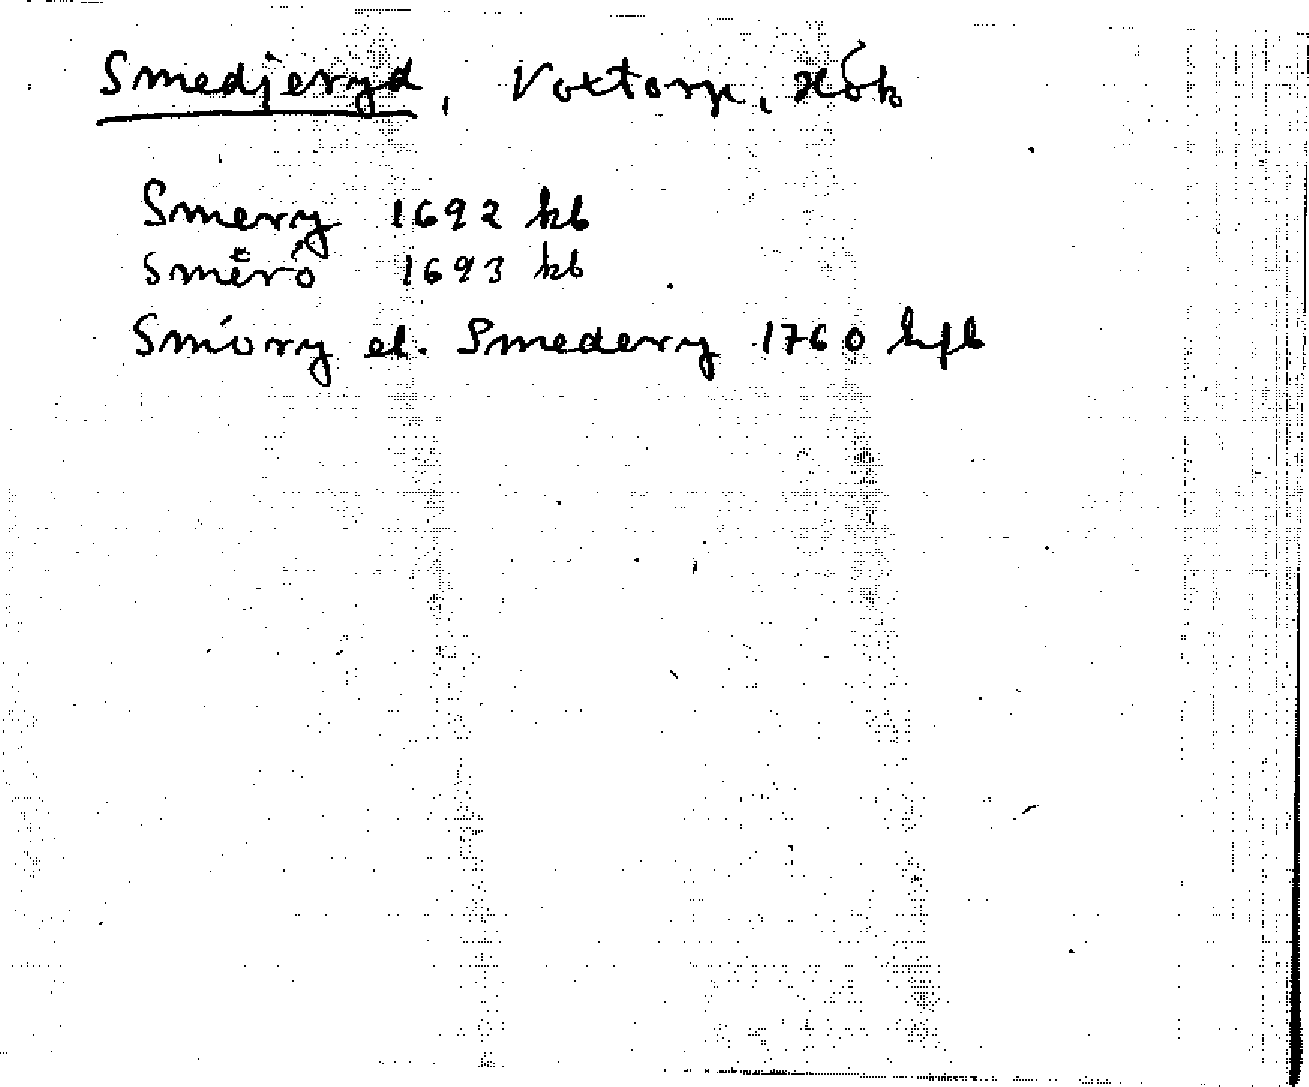 Smedjeryd, Voxtorp,
Smery 1692 kb
Smërö 1693 kb
Smiöry el. Smedery 1760 hfl